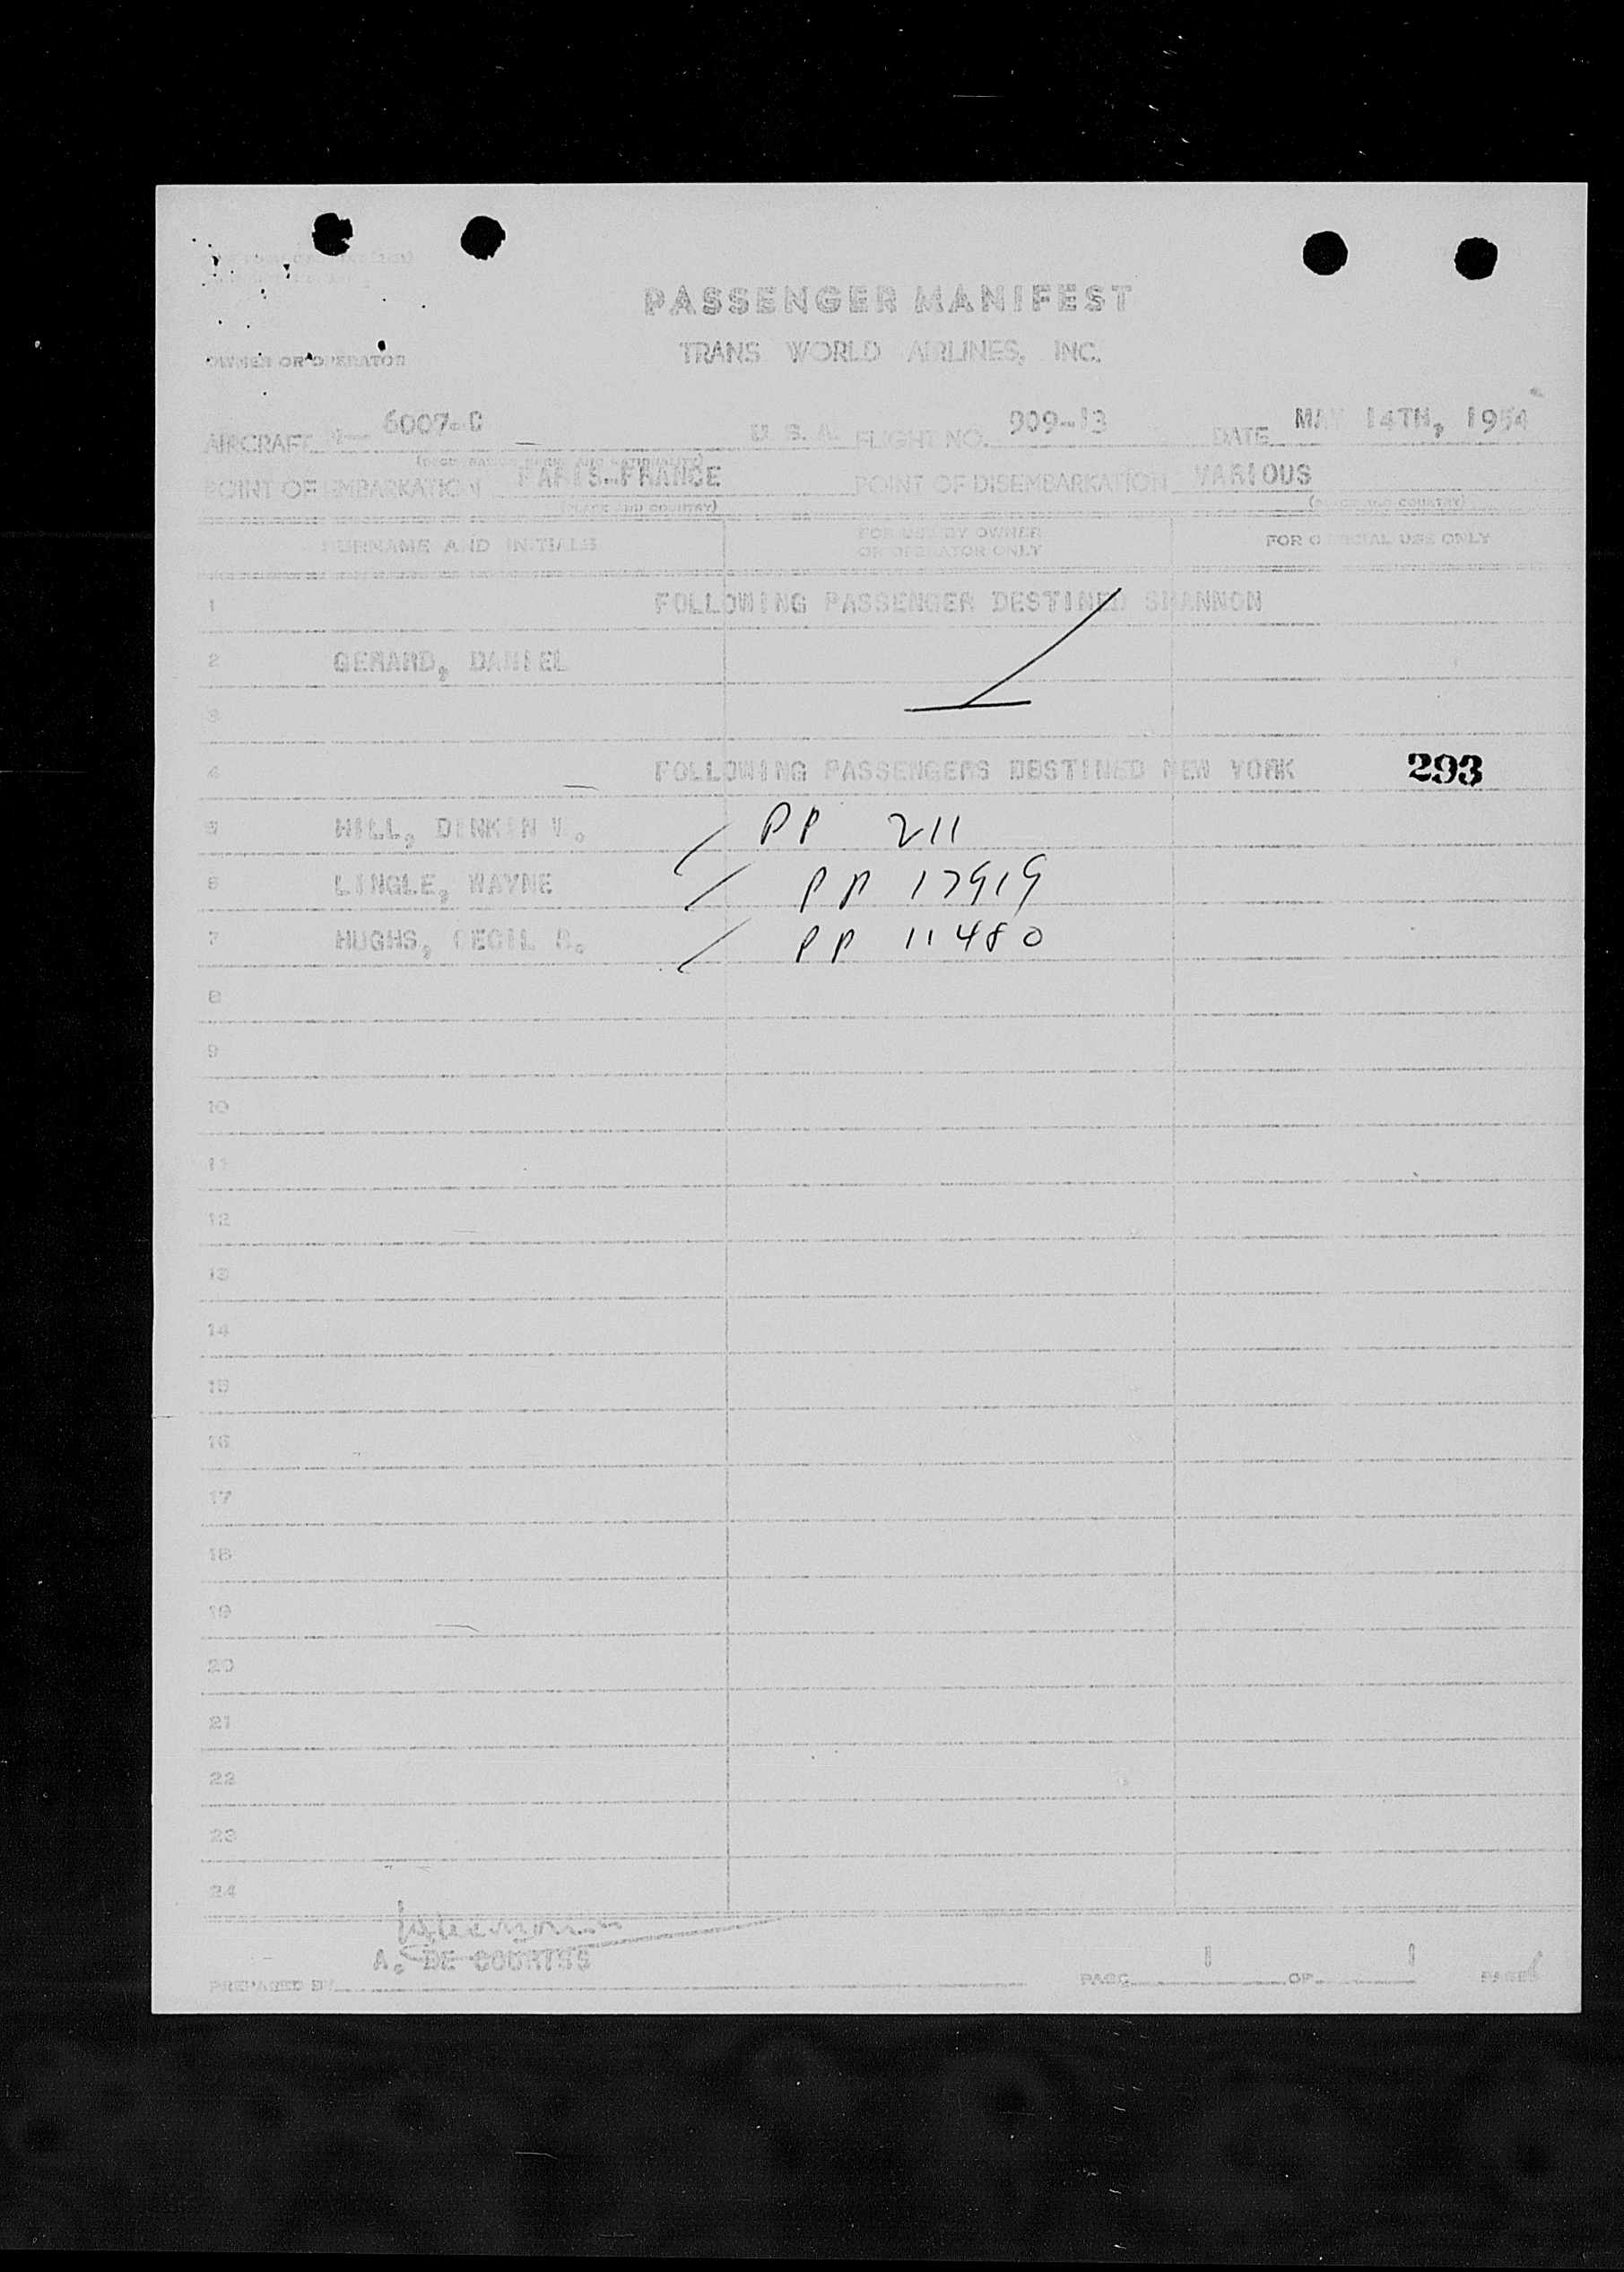 PASSENGER MANIFEST
OWNER OR OPERATOR TRANS WORLD AIRLINES, INC.
AIRCRAFT 6007-C U. S. A. FLIGHT NO. 909-13 DATE MAY 14TH, 1954
(REGISTRATION MARKS AND NATIONALITY)
POINT OF EMBARKATION PARIS-FRANCE POINT OF DISEMBARKATION VARIOUS
(PLACE AND COUNTRY) (PLACE AND COUNTRY)
SURNAME AND INITIALS FOR USE BY OWNER OR OPERATOR ONLY FOR OFFICIAL USE ONLY
1 FOLLOWING PASSENGER DESTINED SHANNON
2 GERARD, DANIEL
3
4 FOLLOWING PASSENGERS DESTINED NEW YORK 293
5 HILL, PP 211
6 LINGLE, WAYNE PP 17919
7 HUGHS, CECIL PP 11480
8
9
10
11
12
13
14
15
16
17
18
19
20
21
22
23
24
A. DE
PREPARED BY PAGE 1 OF 1 PAGES